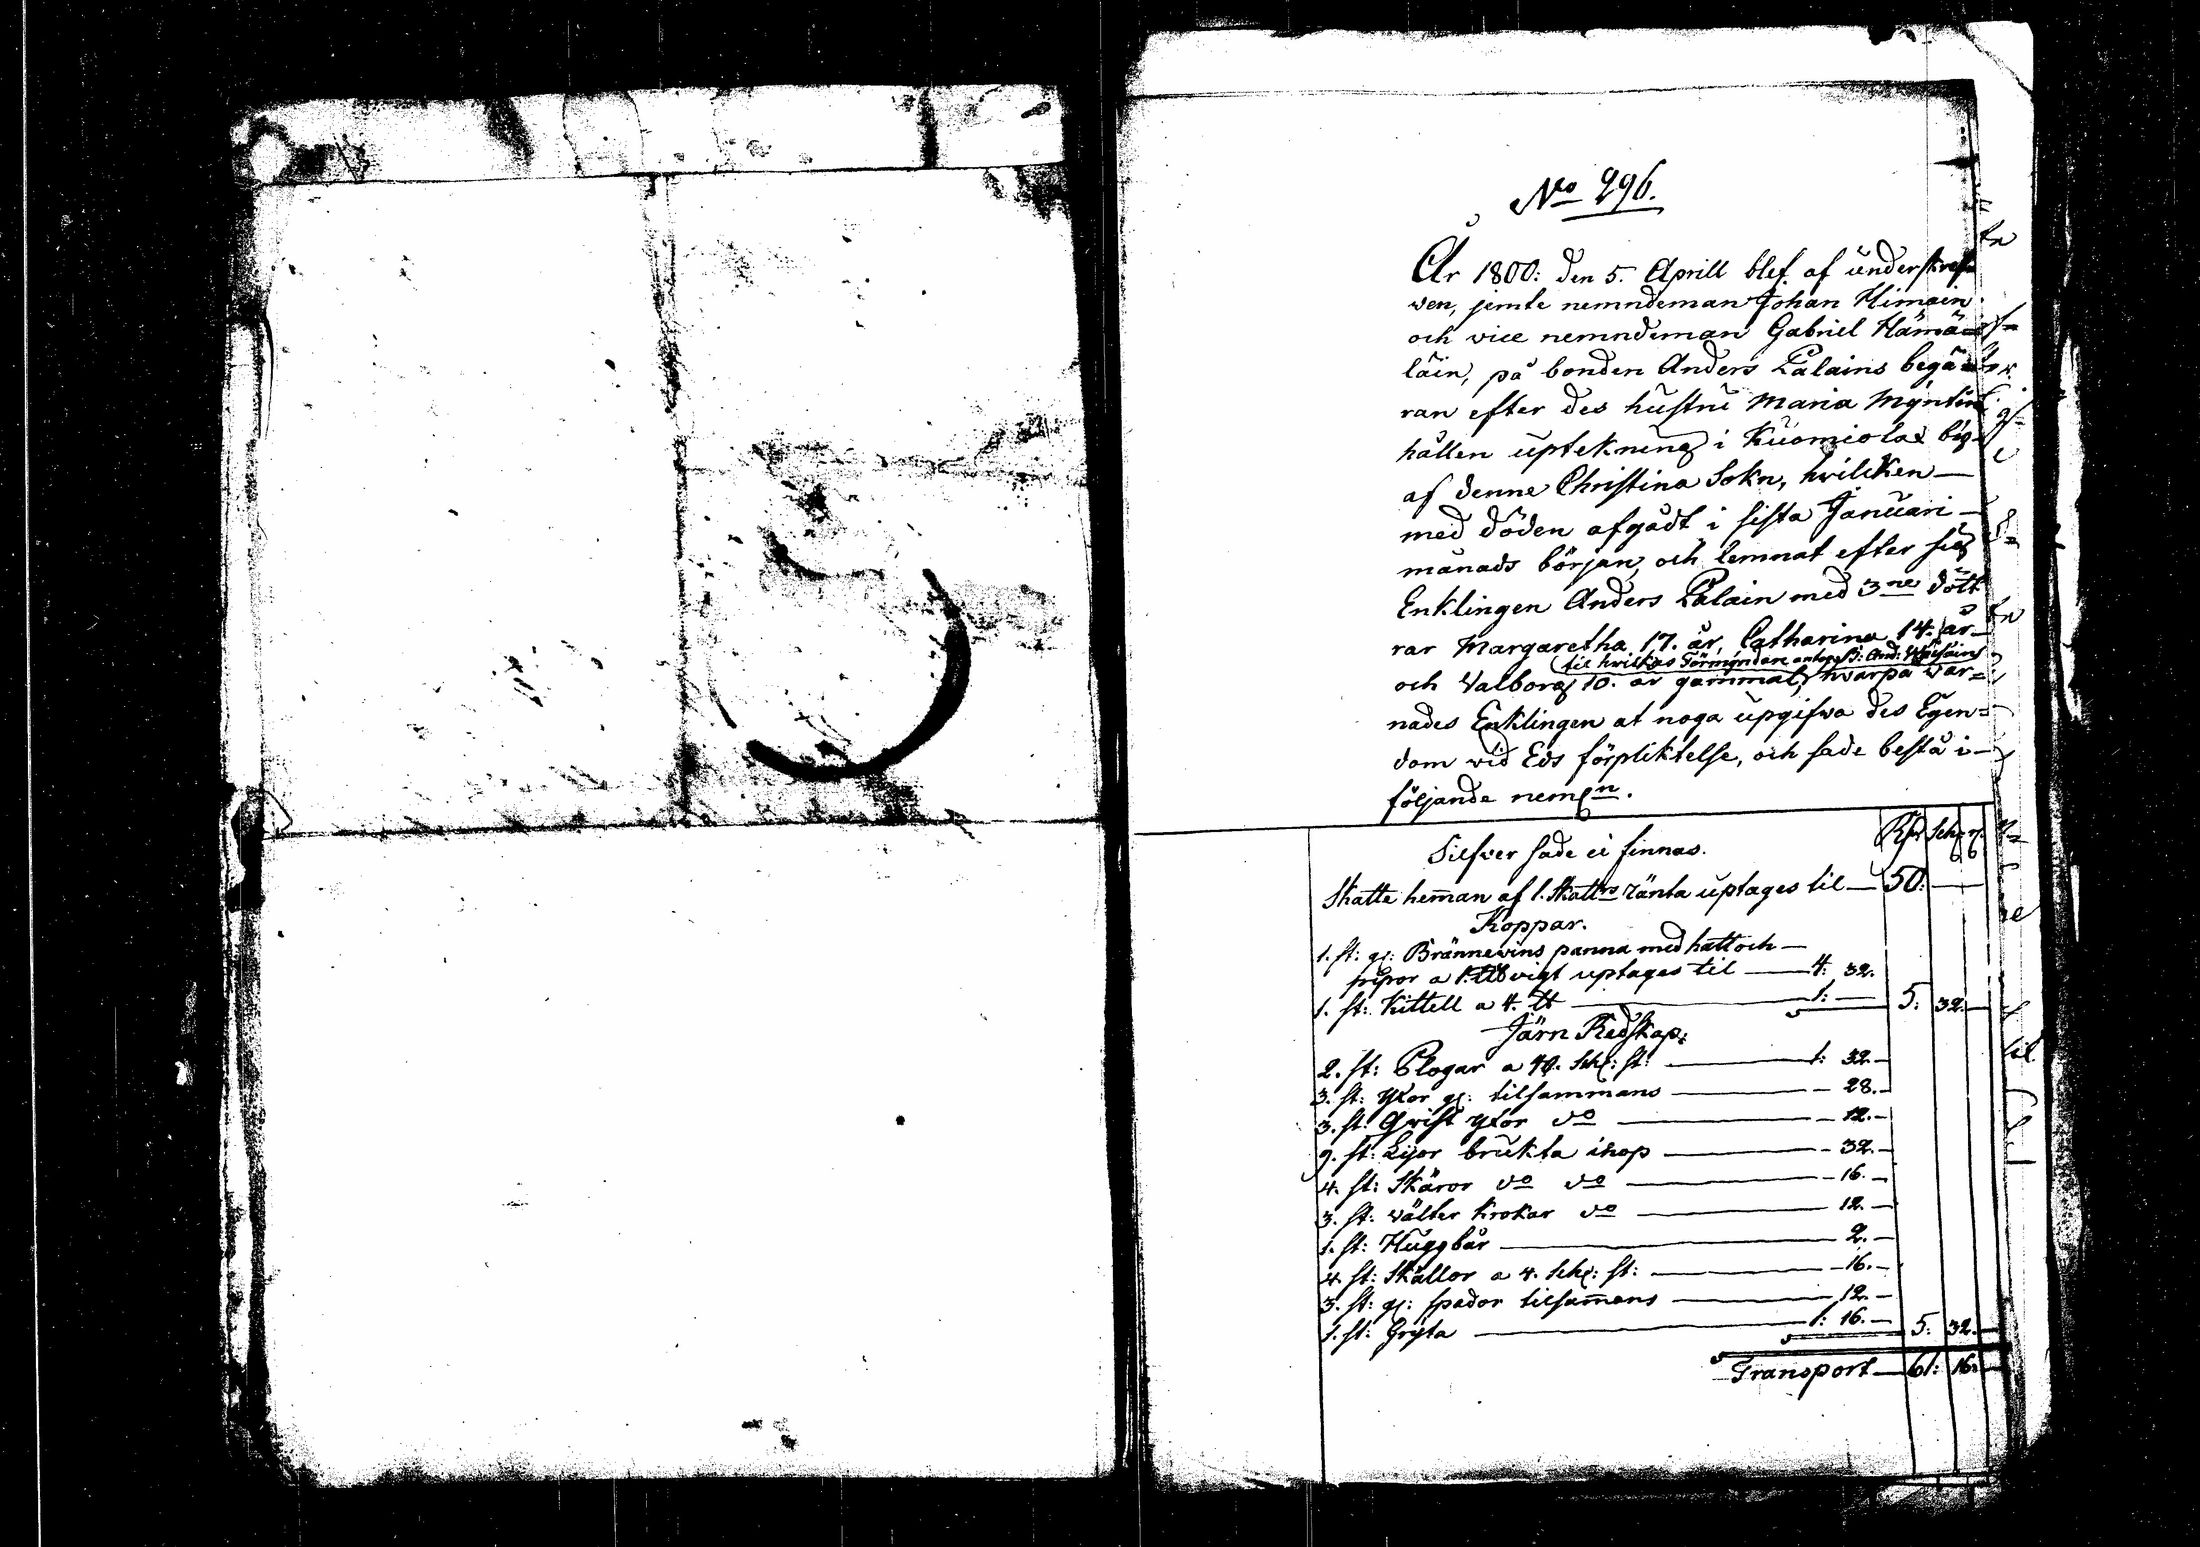 No 296.
År 1800: den 5. Aprill blef af underskref-
ven, jemte nemndeman Johan Himain
och vice nemndeman Gabriel Hämä-
läin, på bonden Anders Palains begä-
ran efter des hustru Maria Myntin
hållen uptekning i Kuomiola by
af denne Christina Sokn, hvilcken
med döden afgådt i sista Januari
månads början, och lemnat efter sig
Enklingen Anders Palain med 3ne dött
rar Margaretha 17. år, Catharina 14. år
til hvilkas Förmyndare antogs B: And:
och Valborg 10. år gammal, hvarpå var-
nades Enklingen at noga upgifva des Egen-
dom vid Eds förpliktelse, och sade bestå i
följande nemln.
Rdr Sch: r.
Silfver sade ei finnas.
Skatte heman af 1. Skattrs ränta uptages til — 50: —
Koppar.
1. st: gl: Brännevins panna med hatt och —
pipor a 1. LLb vigt uptages til — 4: 32.
1. st: Kittell a 4. lb — 1: — 5: 32. —
Järn Redskap:
2. st: Plogar a 40. Schl: st: — 1: 32. —
3. st: yxor gl: tilsammans — 28. —
3. st: Qvist yxor do — 12. —
9. st: Lijor brukta ihop — 32. —
4. st: Skäror do do — 16. —
3. st: välter krokar do — 12. —
1. st: Huggbår — 2. —
4. st: Skällor a 4. Schl: st: — 16. —
3. st: gl: spador tilsamans — 12. —
1. st: Gryta — 1: 16. — 5: 32. —
Transport — 61: 16. —